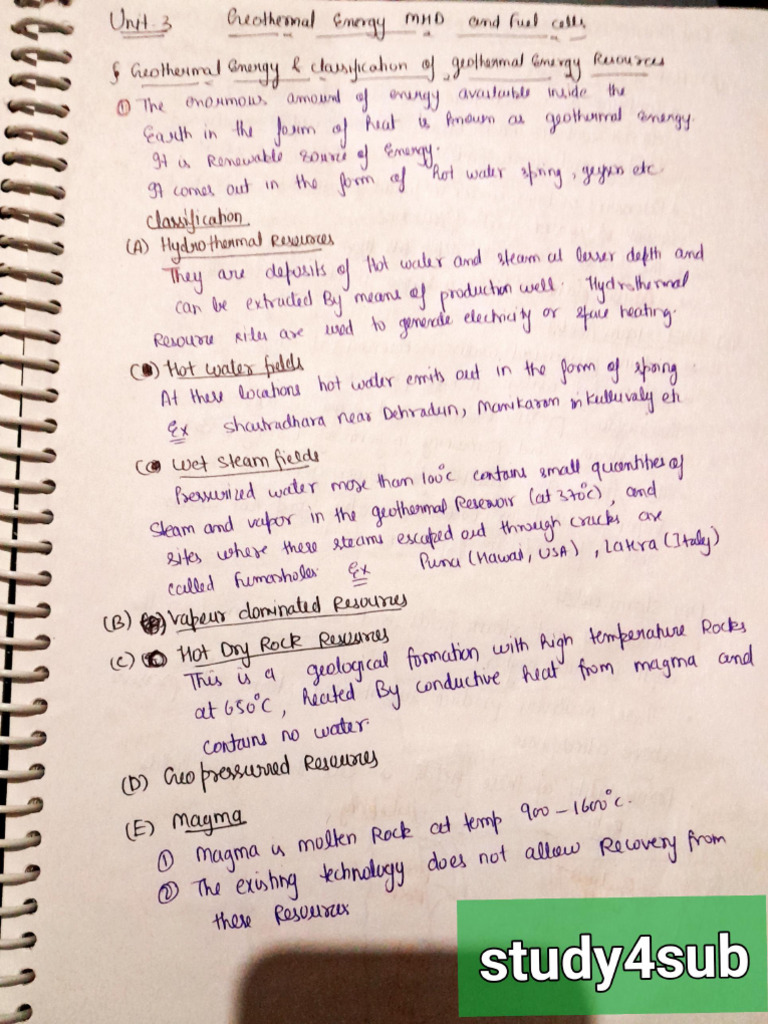 Unit-3 Geothermal Energy MHD and fuel cells
§ Geothermal Energy & classification of geothermal Energy Resources
① The enormous amount of energy available inside the
Earth in the form of heat is known as geothermal energy.
It is Renewable source of Energy.
It comes out in the form of Hot water spring, geysers etc
classification
(A) Hydrothermal Resources
They are deposits of Hot water and steam at lesser depth and
can be extracted By means of production well. Hydrothermal
Resource sites are used to generate electricity or space heating.
Hot water fields
At these locations hot water emits out in the form of spring
Ex shastradhara near Dehradun, Manikaran in Kulluvaly etc
Wet steam fields
Pressurized water more than 100°c contains small quantities of
steam and vapor in the geothermal Reservoir (at 370°c), and
sites where these steams escaped out through cracks are
called fumarholes Ex Puna (Hawai, USA), Latera (Italy)
(B) Vapour dominated Resources
(C) Hot Dry Rock Resources
This is a geological formation with high temperature Rocks
at 650°C, heated By conductive heat from magma and
contains no water.
(D) Geopressurred Resources
(E) Magma
① Magma is molten Rock at temp 900-1600°c.
② The existing technology does not allow Recovery from
these Resources
study4sub